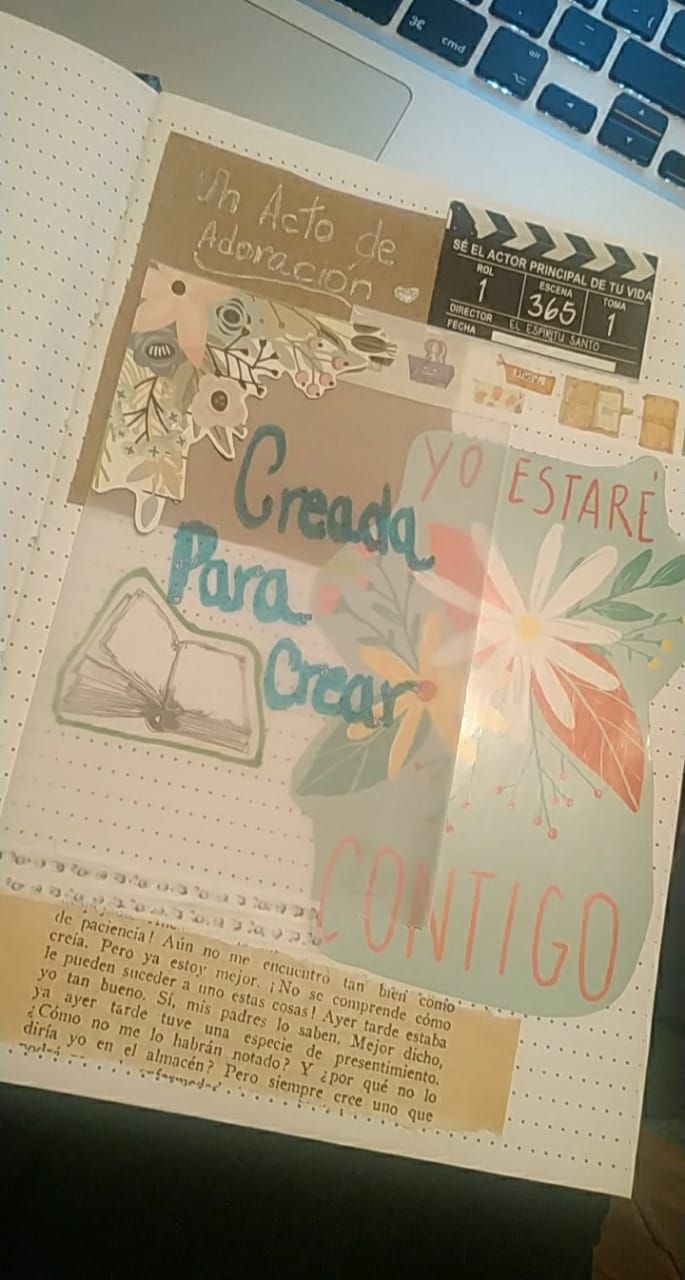 cmd
alt
Un Acto de
Adoración
SÉ EL ACTOR PRINCIPAL DE TU VIDA
ROL
1
ESCENA
365
TOMA
1
DIRECTOR
EL ESPIRITU SANTO
FECHA
YO ESTARÉ
CONTIGO
Creada
Para
Crear
de paciencia! Aún no me encuentro tan bien como
creía. Pero ya estoy mejor. ¡No se comprende cómo
le pueden suceder a uno estas cosas! Ayer tarde estaba
yo tan bueno. Sí, mis padres lo saben. Mejor dicho,
ya ayer tarde tuve una especie de presentimiento.
¿Cómo no me lo habrán notado? Y ¿por qué no lo
diría yo en el almacén? Pero siempre cree uno que